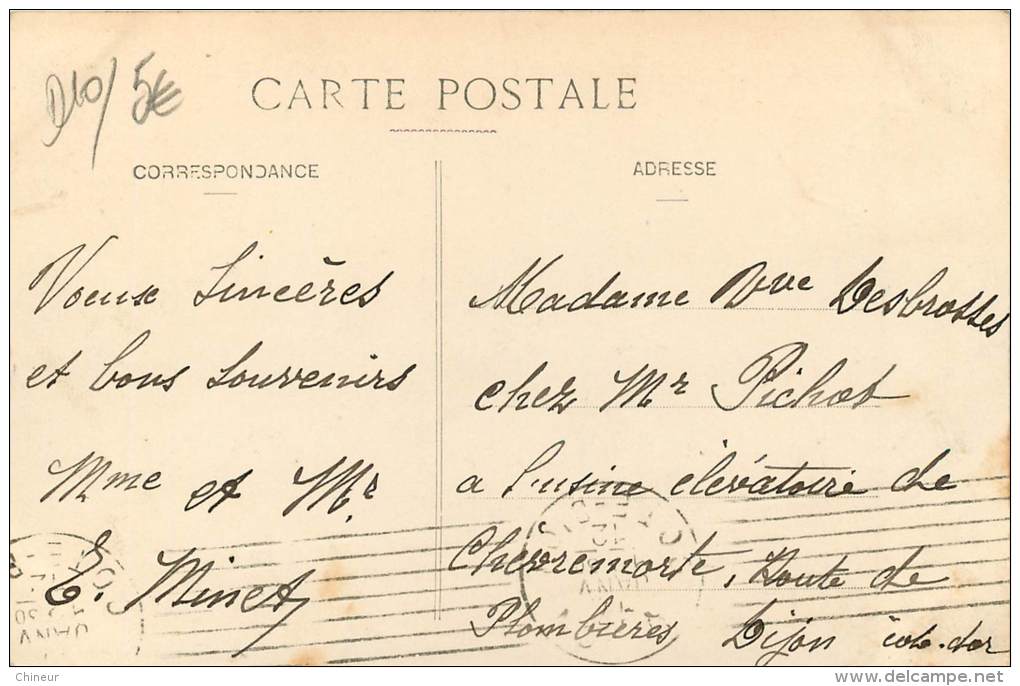 D40/ 5€
CARTE POSTALE
CORRESPONDANCE
ADRESSE
Voeux Sincères
et bons souvenirs
Mme et Mr
E. Minet
Madame Vve Desbrosses
chez Mr Pichot
a l'usine élévatoire de
Chevremorte, Route de
Plombières Dijon cote-d'or
Chineur
www.delcampe.net